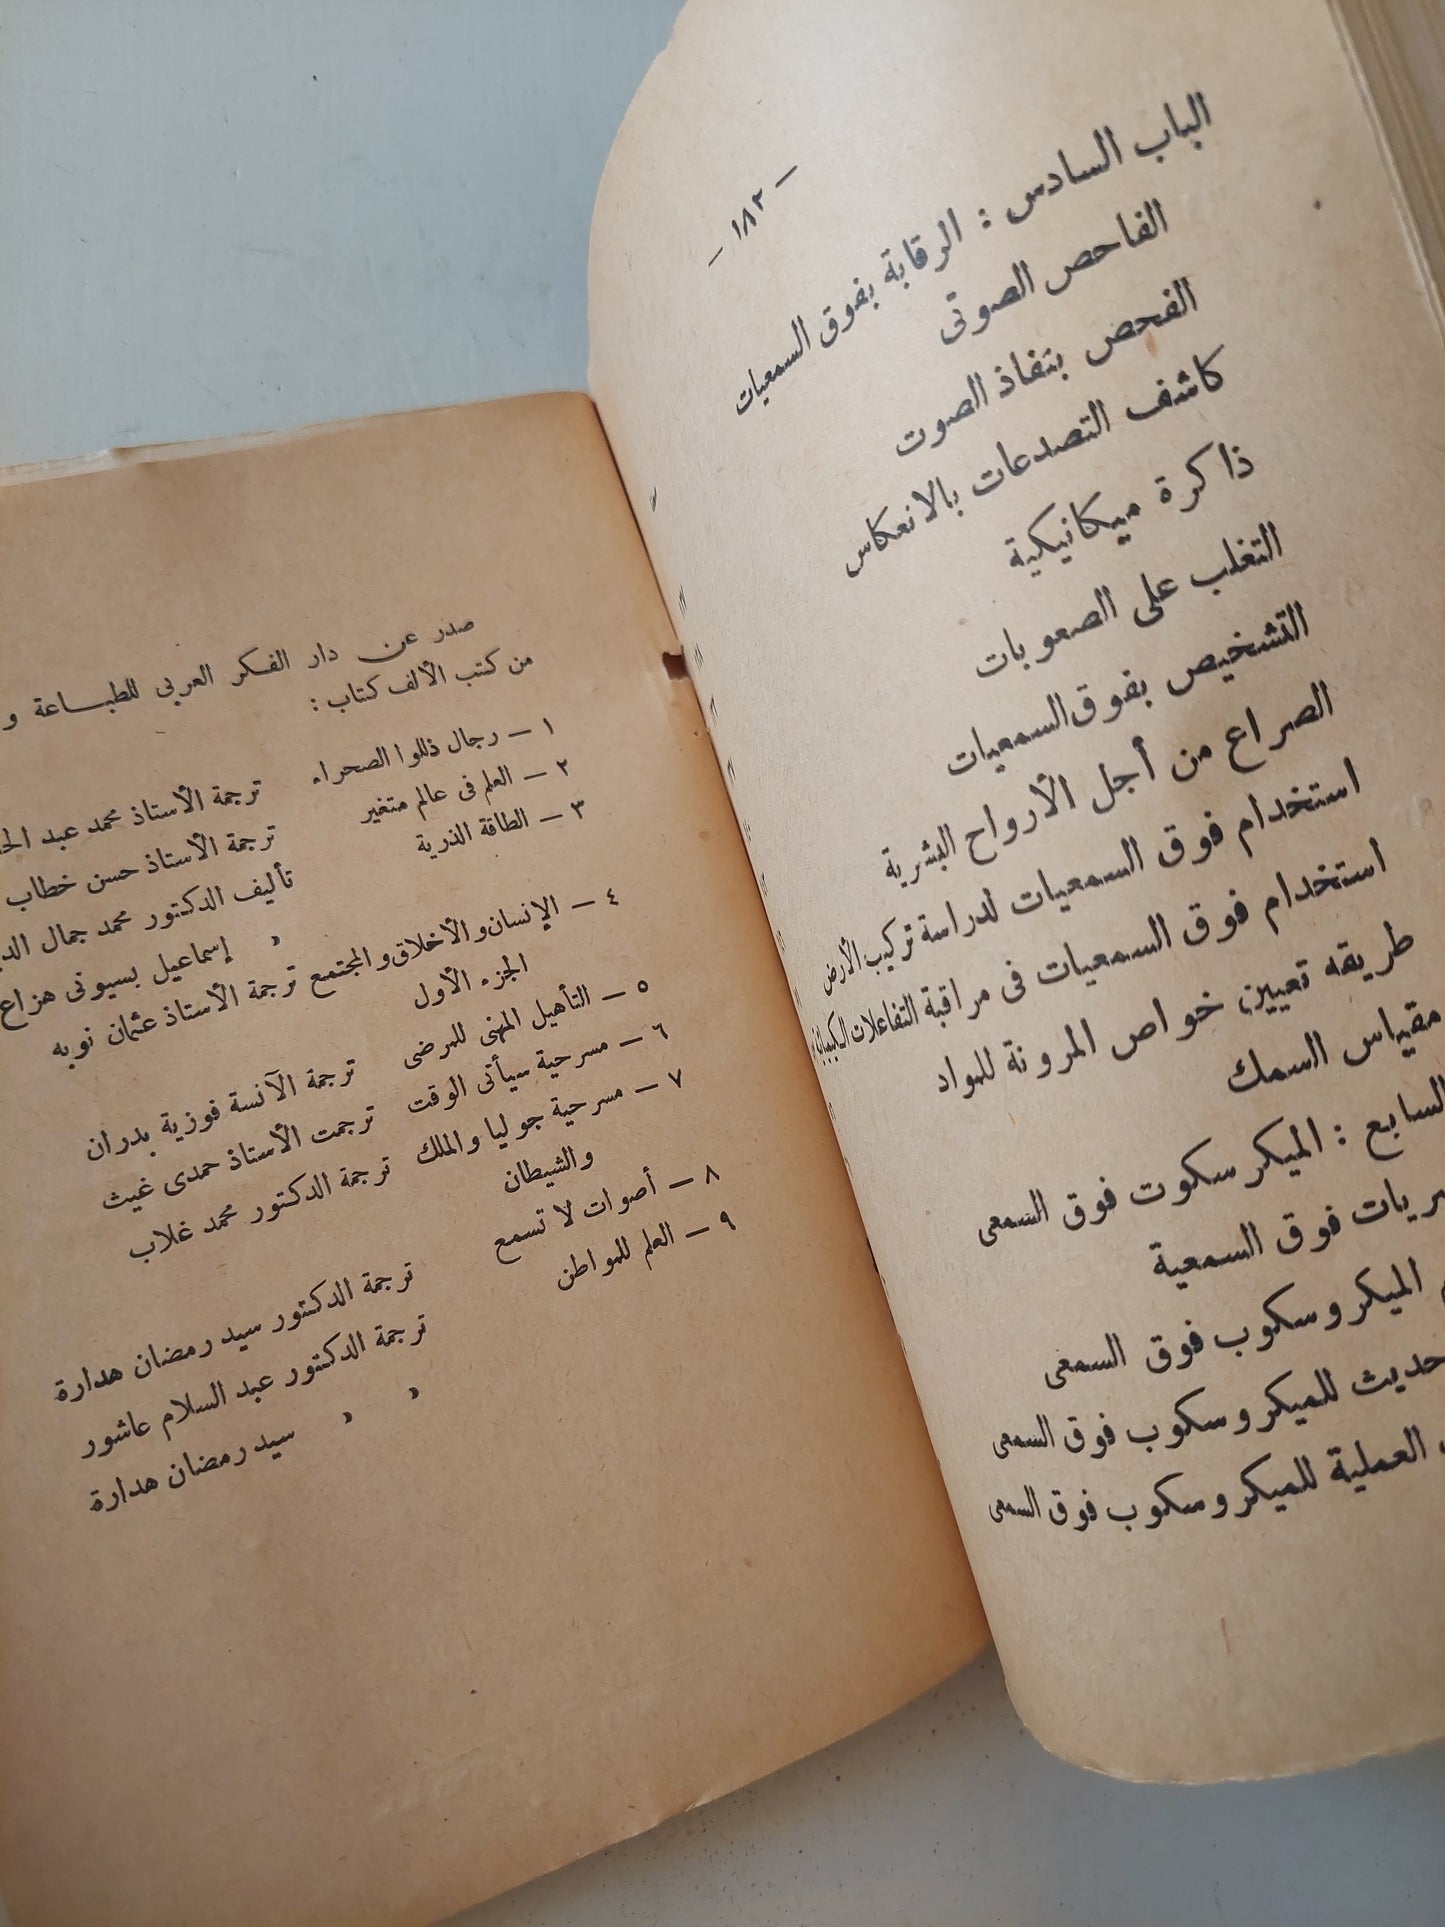 — ١٨٢ —
الباب السادس : الرقابة بفوق السمعيات
الفاحص الصوتى
الفحص بنفاذ الصوت
كاشف التصدعات بالانعكاس
ذاكرة ميكانيكية
التغلب على الصعوبات
التشخيص بفوق السمعيات
الصراع من أجل الأرواح البشرية
استخدام فوق السمعيات لدراسة تركيب الأرض
استخدام فوق السمعيات فى مراقبة التفاعلات
طريقه تعيين خواص المرونة للمواد
مقياس السمك
السابع : الميكرسكوت فوق السمعى
فوق السمعية
الميكروسكوب فوق السمعى
حديث للميكروسكوب فوق السمعى
العملية للميكروسكوب فوق السمعى
صدر عن دار الفكر العربى للطباعة و
من كتب الألف كتاب :
١ — رجال ذللوا الصحراء ترجمة الأستاذ محمد عبد
٢ — العلم فى عالم متغير ترجمة الأستاذ حسن خطاب
٣ — الطاقة الذرية تأليف الدكتور محمد جمال
» إسماعيل بسيونى هزاع
٤ — الإنسان والأخلاق والمجتمع ترجمة الأستاذ عثمان نويه
الجزء الأول
٥ — التأهيل المهنى للمرضى ترجمة الآنسة فوزية بدران
٦ — مسرحية سيأتى الوقت ترجمت الأستاذ حمدى غيث
٧ — مسرحية جوليا والملك ترجمة الدكتور محمد غلاب
والشيطان
٨ — أصوات لا تسمع ترجمة الدكتور سيد رمضان هدارة
٩ — العلم للمواطن ترجمة الدكتور عبد السلام عاشور
» » سيد رمضان هدارة